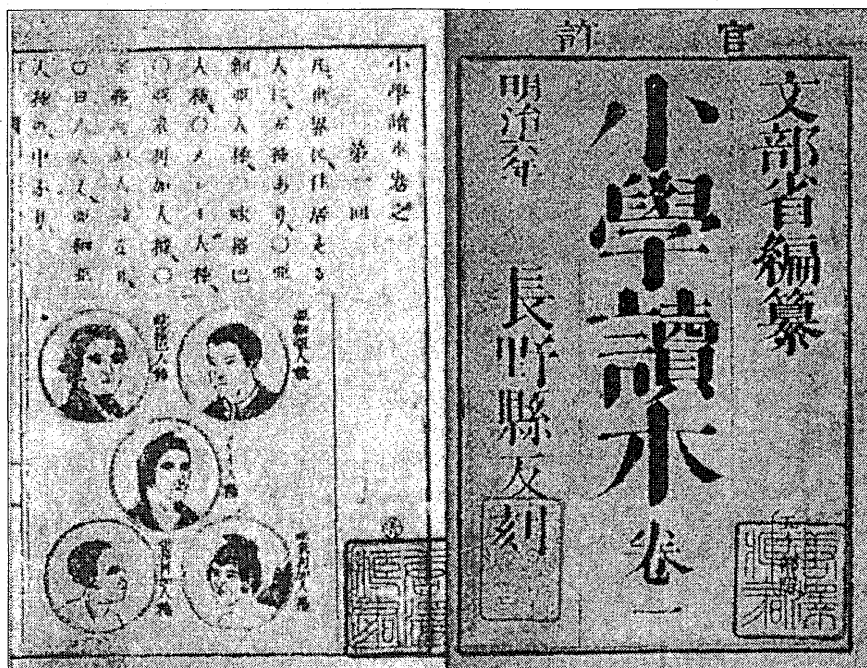 官許
文部省編纂
小學讀本 卷一
明治六年 長野縣反刻
小學讀本卷之
第一回
凡世界に住居する
人に、五種あり、○亞
細亞人種、○歐羅巴
人種、○人種、
○亞米利加人種、○
亞弗利加人種なり、
○日本人は、亞細亞
人種の中なり、
亞細亞人種
歐羅巴人種
人種
亞米利加人種
人種